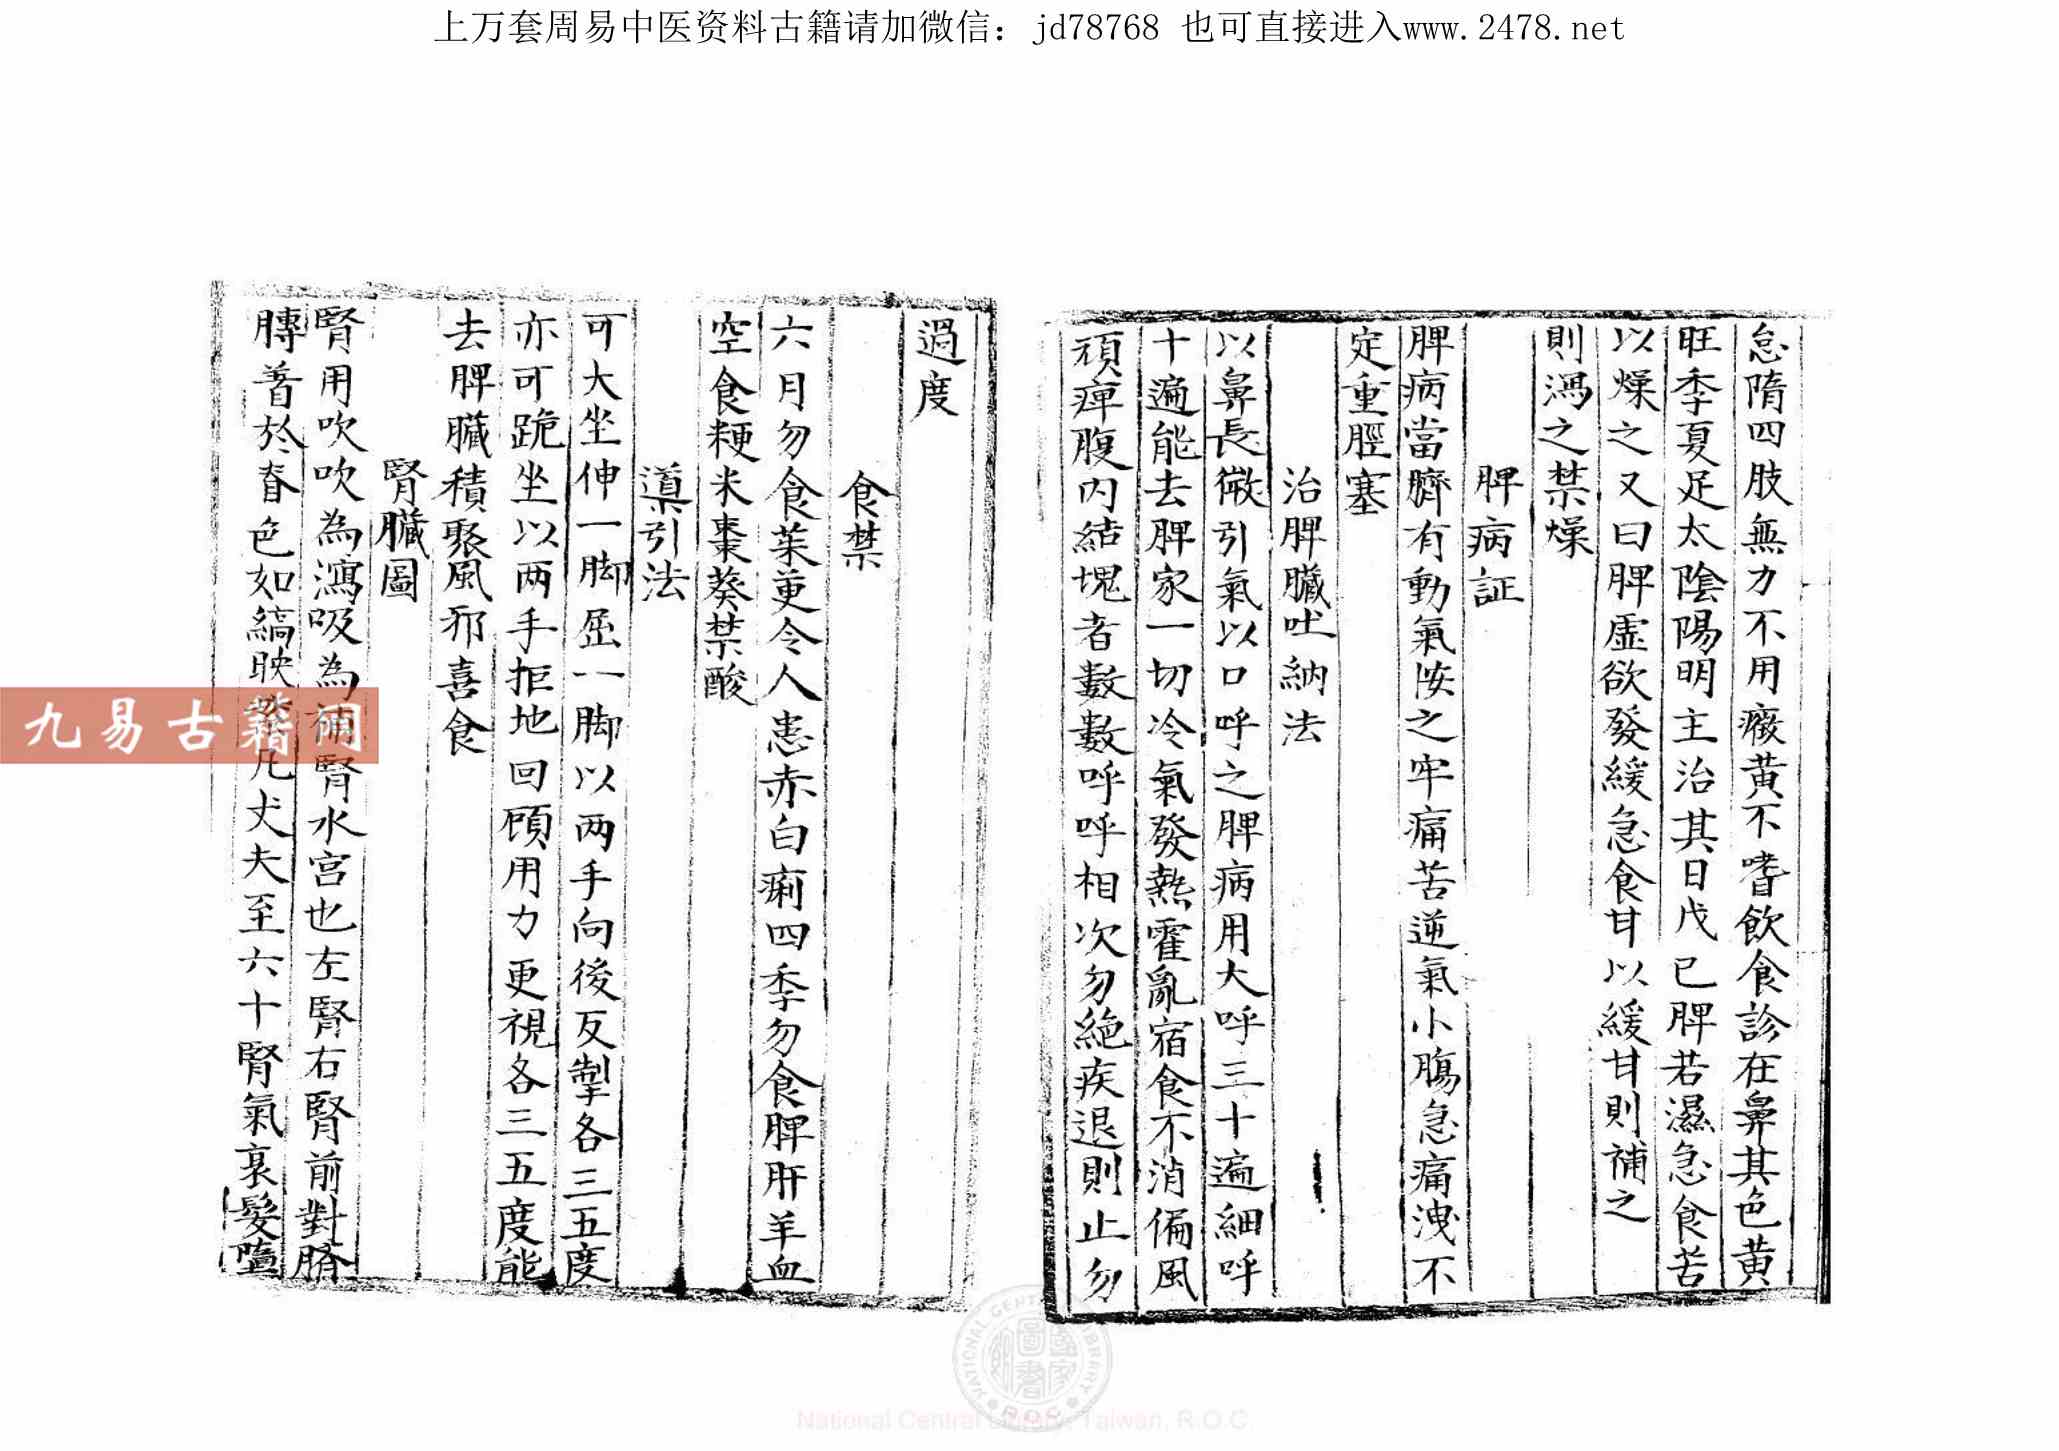 上万套周易中医资料古籍请加微信：jd78768 也可直接进入www.2478.net
怠隋四肢無力不用癥黃不嗜飲食診在鼻其色黃
旺季夏足太陰陽明主治其日戊己脾若濕急食苦
以燥之又曰脾虛欲發緩急食甘以緩甘則補之
則瀉之禁燥
脾病証
脾病當臍有動氣按之牢痛苦逆氣小腸急痛洩不
定重脛塞
治脾臟吐納法
以鼻長微引氣以口呼之脾病用大呼三十遍細呼
十遍能去脾家一切冷氣發熱霍亂宿食不消偏風
頑痺腹内結塊者數數呼呼相次勿絶疾退則止勿
過度
食禁
六月勿食茱更令人患赤白痢四季勿食脾肝羊血
空食粳米棗葵禁酸
導引法
可大坐伸一脚屈一脚以两手向後反掣各三五度
亦可跪坐以两手拒地回顧用力更視各三五度能
去脾臟積聚風邪喜食
腎臟圖
腎用吹吹為瀉吸為補腎水宫也左腎右腎前對臍
膞著於脊色如縞映紫凡丈夫至六十腎氣衰髮墮
九易古籍网
NATIONAL CENTRAL LIBRARY R.O.C
國家圖書館
National Central Library, Taiwan, R.O.C